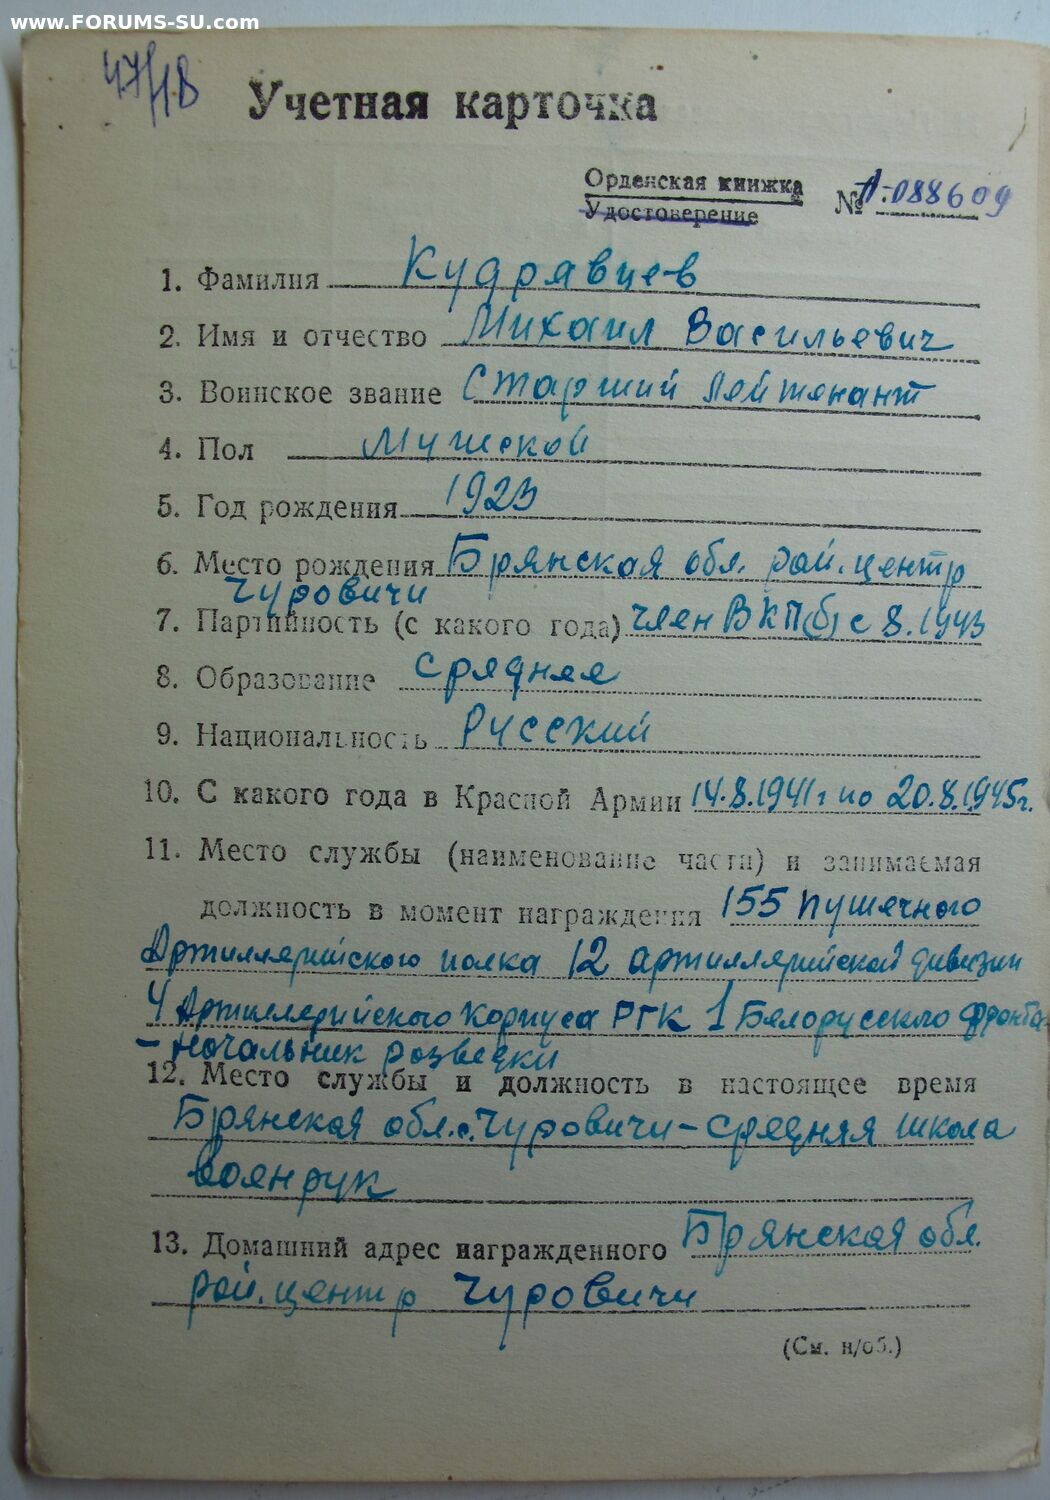 www.FORUMS-SU.com
47/1В
Учетная карточка
Орденская книжка
Удостоверение
№ А-088609
1. Фамилия Кудрявцев
2. Имя и отчество Михаил Васильевич
3. Воинское звание Старший лейтенант
4. Пол Мужской
5. Год рождения 1923
6. Место рождения Брянская обл. рай. центр
Чуровичи
7. Партийность (с какого года) член ВКП(б) с 8.1943
8. Образование средняя
9. Национальность Русский
10. С какого года в Красной Армии 14.8.1941г по 20.8.1945г.
11. Место службы (наименование части) и занимаемая
должность в момент награждения 155 пушечного
Артиллерийского полка 12 артиллерийской дивизии
4 Артиллерийского Корпуса РГК 1 Белорусского фронта
- начальник разведки
12. Место службы и должность в настоящее время
Брянская обл. с. Чуровичи - средняя школа
военрук
13. Домашний адрес награжденного Брянская обл.
рай. центр Чуровичи
(См. н/об.)